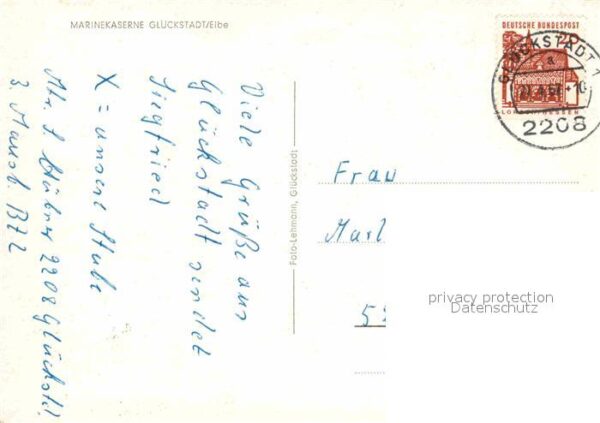 MARINEKASERNE GLÜCKSTADT/Elbe
Viele Grüße aus
Glückstadt sendet
Siegfried
X = unsere Stube
Abs. S. Hübner 2208 Glückstdt
3. Mausb. Btl 2
Foto-Lehmann, Glückstadt
DEUTSCHE BUNDESPOST
20
LORSCH/HESSEN
GLÜCKSTADT 1
a
2208
Frau
Marl
5
privacy protection
Datenschutz